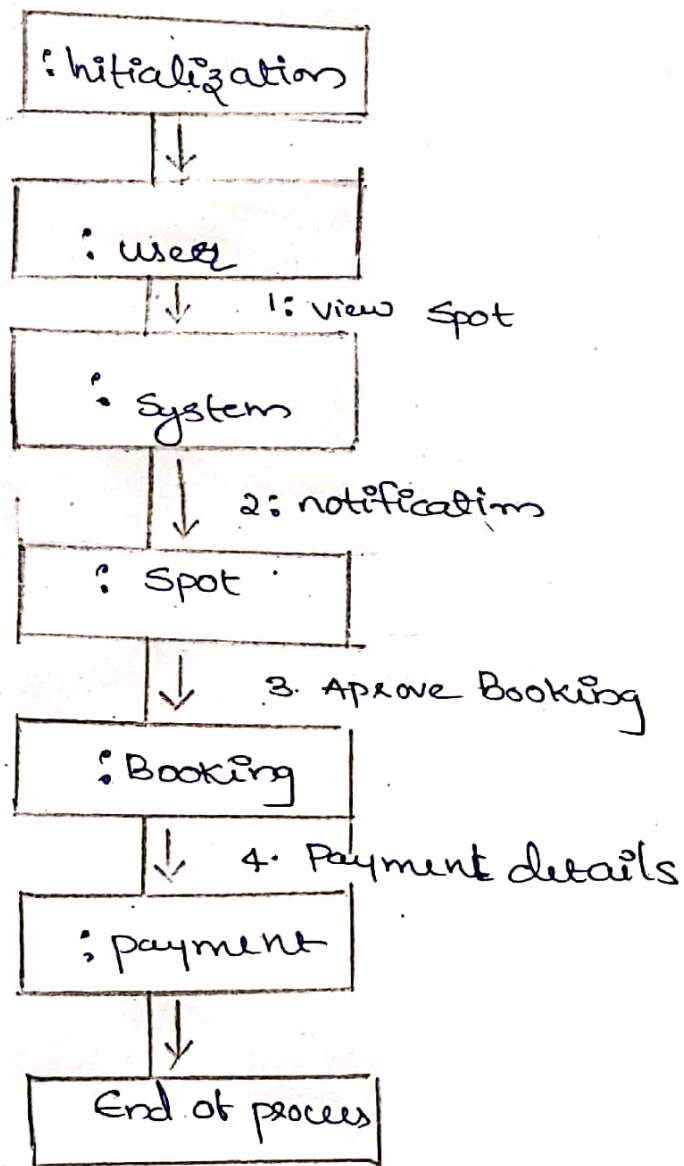 : Initialization
: user
1: view spot
: System
2: notification
: Spot
3. Aprove Booking
: Booking
4. Payment details
: payment
End of process